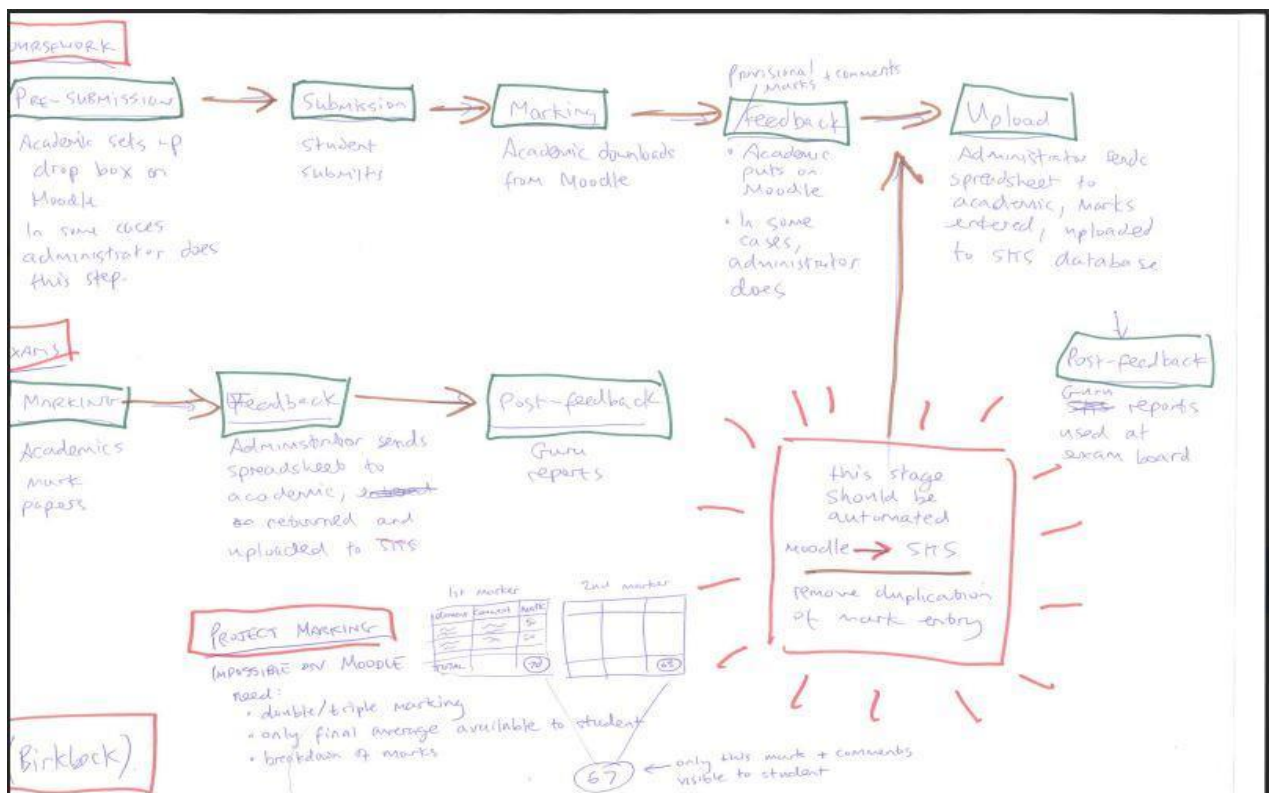 OURSEWORK
PRE-SUBMISSION
Academic sets up
drop box on
Moodle
In some cases
administrator does
this step.
Submission
Student
submits
Marking
Academic downloads
from Moodle
Provisional + comments
marks
Feedback
• Academic
puts on
Moodle
• In some
cases,
administrator
does
Upload
Administrator sends
spreadsheet to
academic, marks
entered, uploaded
to SITS database
Post-feedback
Guru
SITS reports
used at
exam board
XAMS
MARKING
Academics
mark
papers
Feedback
Administrator sends
spreadsheet to
academic, entered
returned and
uploaded to SITS
Post-feedback
Guru
reports
this stage
should be
automated
Moodle → SITS
remove duplication
of mark entry
PROJECT MARKING
IMPOSSIBLE ON MOODLE
need:
• double/triple marking
• only final average available to student
• breakdown of marks
1st marker
Comment Mark
TOTAL 70
2nd marker
67 ← only this mark + comments
visible to student
(Birkbeck)